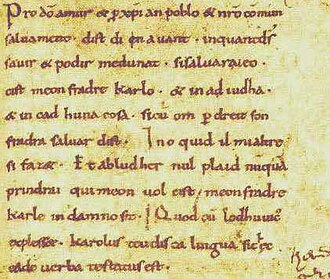 Pro dō amur & p xp̄ian poblo & nr̄o cōmun
saluament. dist di en auant. inquant ds̄
sauir & podir medunat. sisaluaraieo.
cist meon fradre karlo. & in ad iudha.
& in cad huna cosa. sicū om p dreit son
fradra saluar dist. Ino quid il mialtre
si faz&. Et abludher nul plaid nūquā
prindrai qui meon uol cist. meon fradre
karle in damno sit. Quod cū lodhuuic
explesset. karolus teudisca lingua sic
eadē uerba testatus est.